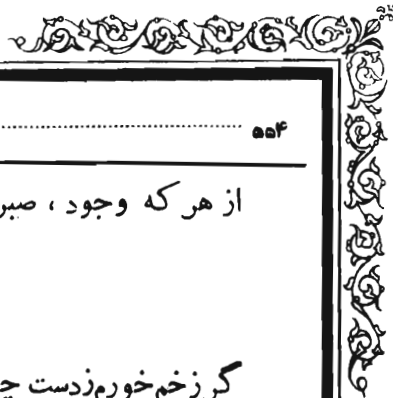 ۵۵۴
از هر که وجود ، صبر
گر زخم خورم ز دست